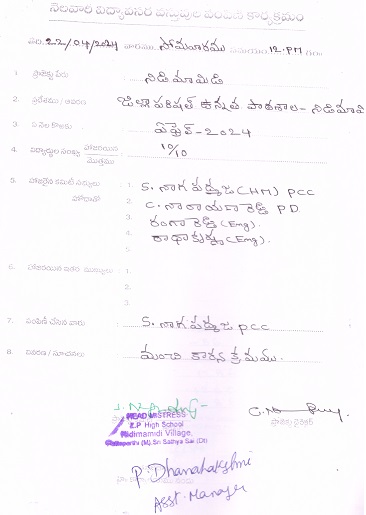 నెలవారి విద్యావసర వస్తువుల పంపిణీ కార్యక్రమం
22/04/2024 వారము సోమవారము సమయం 12.PM గం॥
1. ప్రాజెక్టు పేరు నిడిమామిడి
2. ప్రదేశము / వివరం జిల్లా పరిషత్ ఉన్నత పాఠశాల - నిడిమామి
3. ఏ నెల కొఱకు ఏప్రిల్ - 2024
4. విద్యార్థుల సంఖ్య హాజరయిన / మొత్తము 10/10
5. హాజరైన కమిటీ సభ్యులు 1. S. నాగ పద్మజ (HM) PCC
హోదాతో 2. C. నారాయణ రెడ్డి P.D
3. రంగా రెడ్డి (Eng).
4. రాధాకృష్ణ (Eng).
5.
6. హాజరయిన ఇతర ముఖ్యులు : 1.
2.
3.
7. పంపిణీ చేసిన వారు S. నాగ పద్మజ PCC
8. వివరణ / సూచనలు మంచి కార్యక్రమము.
HEAD MISTRESS
Z.P High School
Nidimamidi Village,
(M).Sri Sathya Sai (Dt)
ప్రాజెక్టు డైరెక్టర్
P. Dhanalakshmi
Asst. Manager